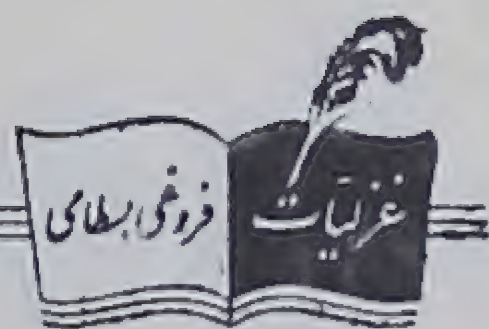 غزلیّات
فروغی بسطامی